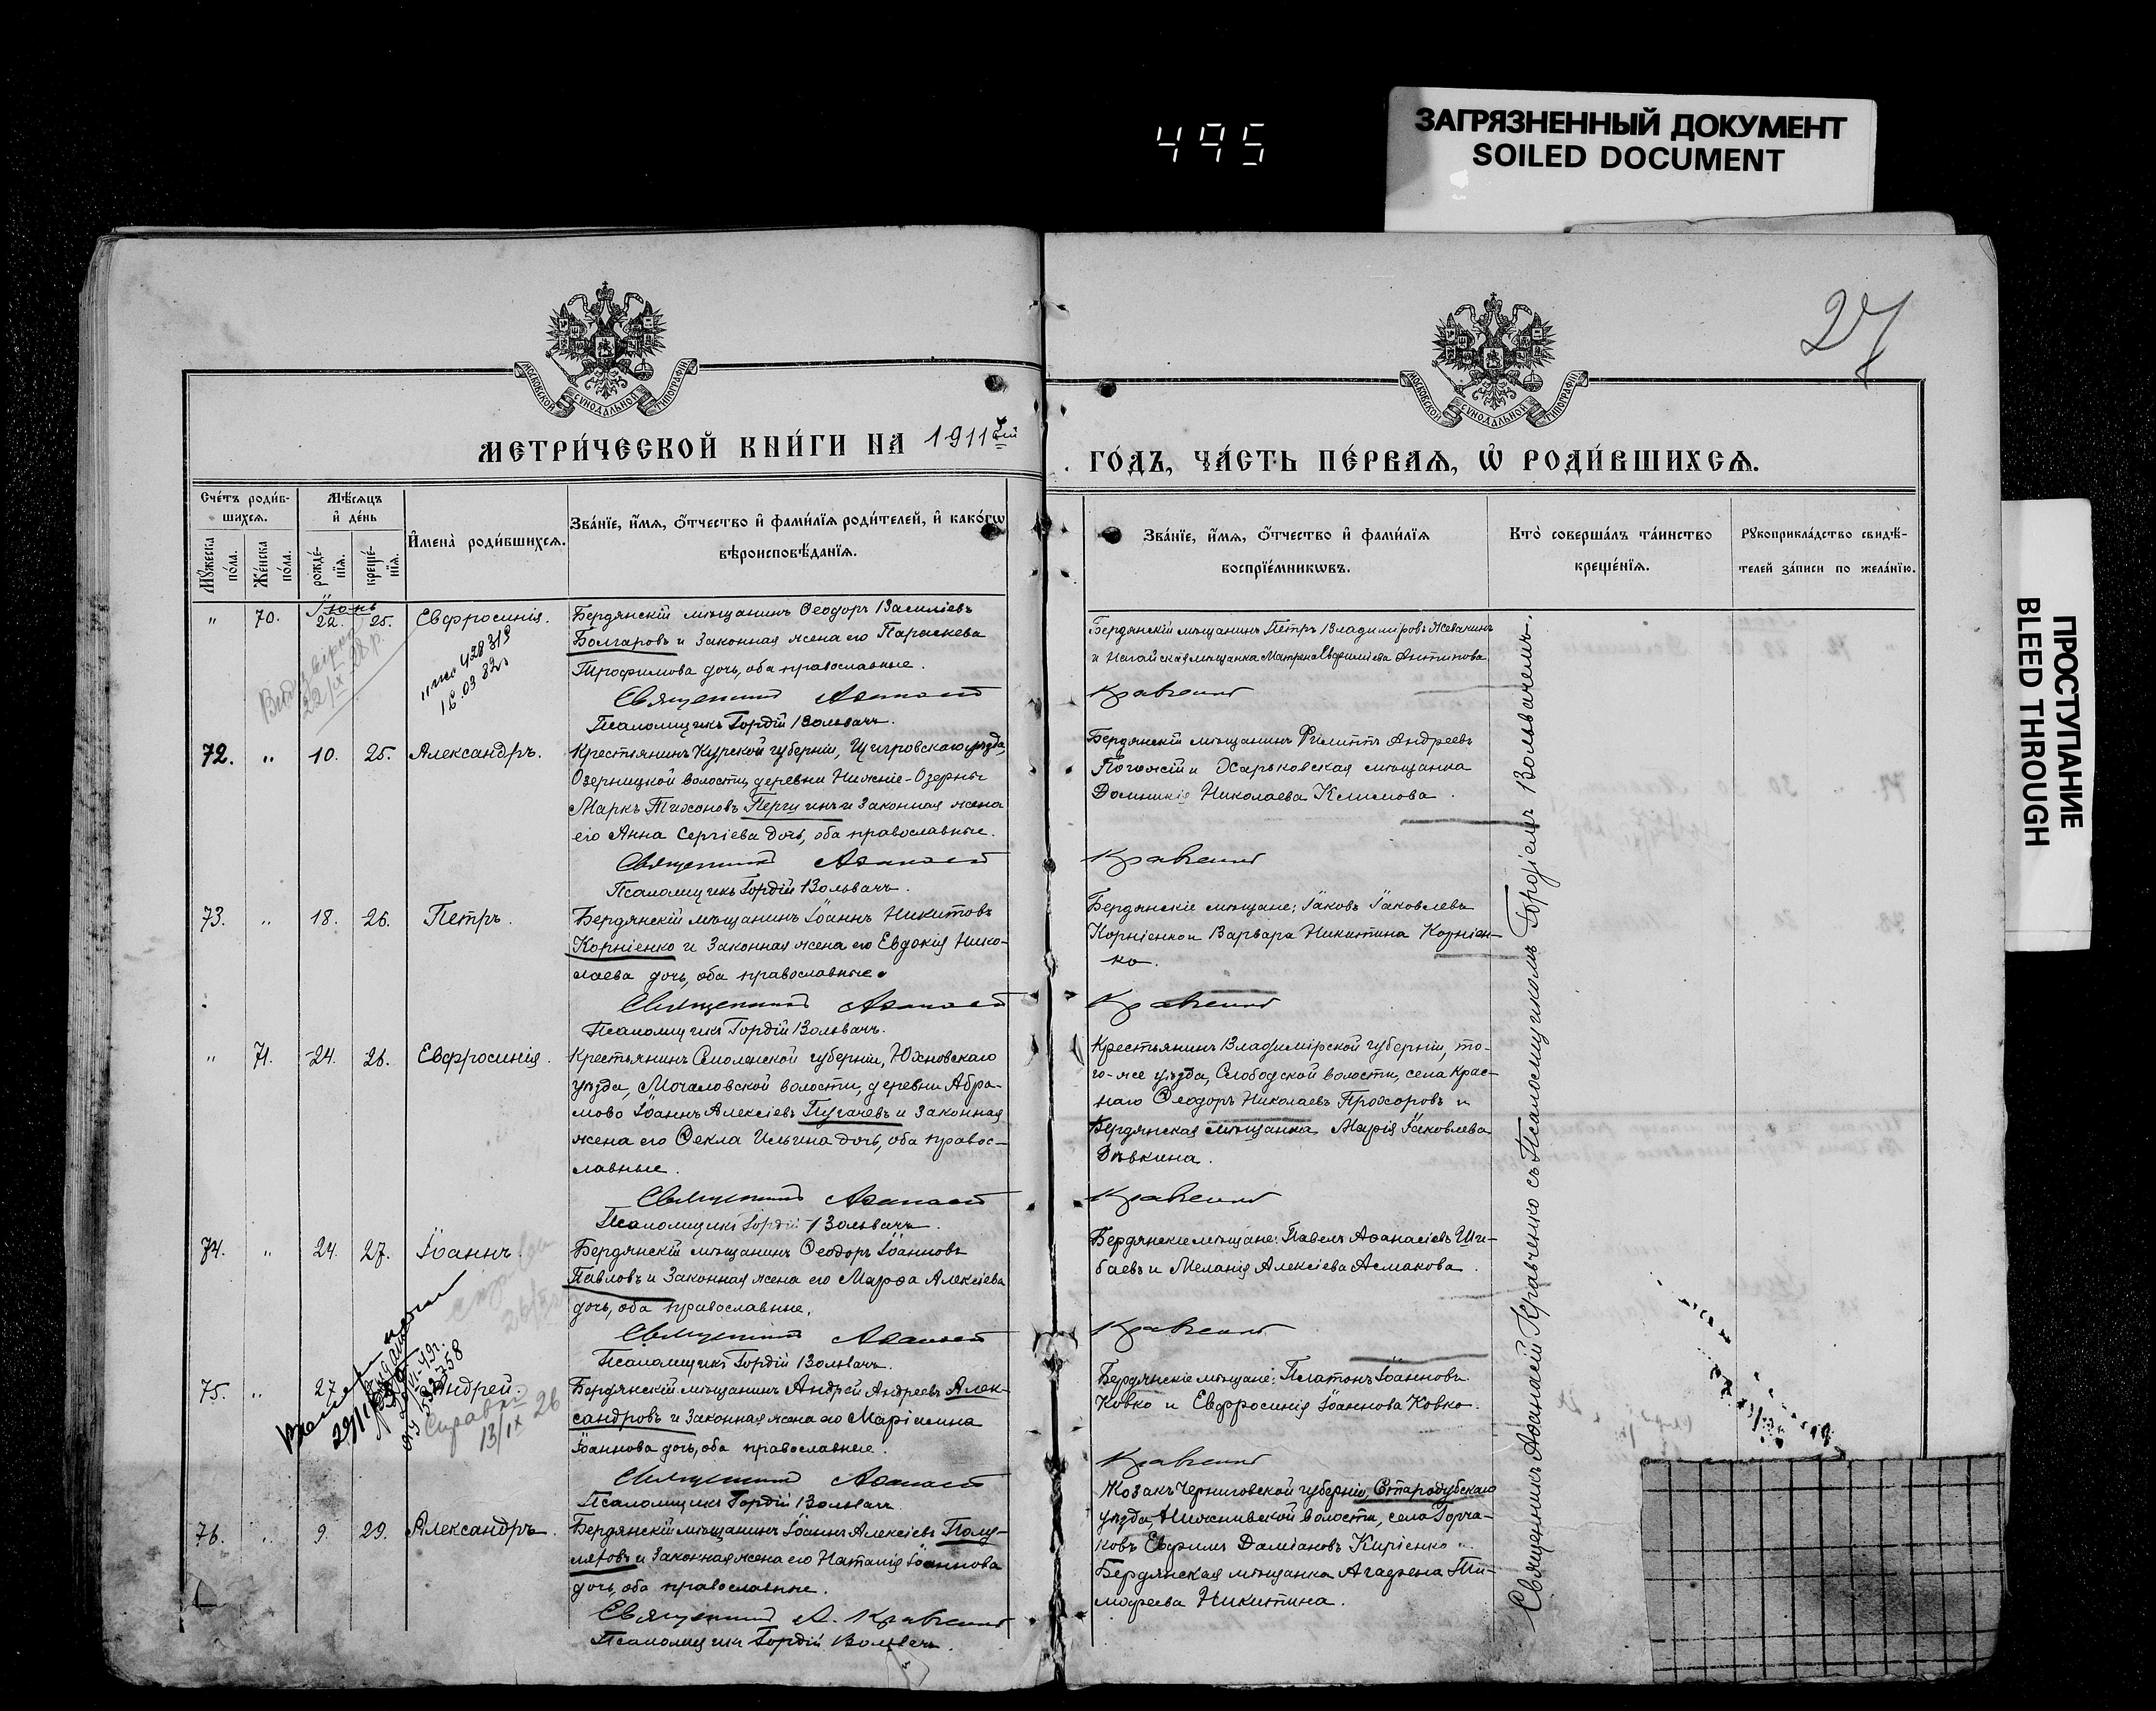 495
ЗАГРЯЗНЕННЫЙ ДОКУМЕНТ
SOILED DOCUMENT
ПРОСТУПАНИЕ
BLEED THROUGH
27
МОСКОВСКОЙ СѴНОДАЛЬНОЙ ТИПОГРАФІИ
МОСКОВСКОЙ СѴНОДАЛЬНОЙ ТИПОГРАФІИ
МЕТРИ́ЧЕСКОЙ КНИ́ГИ НА 1911
ГО́ДЪ, ЧА́СТЬ ПЕ́РВАѦ, Ѡ РОДИ́ВШИХСѦ.
Сче́тъ роди́в-
шихсѧ.
Мѣ́сѧцъ
и҆ де́нь
Мꙋ́жеска
по́ла.
Же́нска
по́ла.
рожде́-
нїѧ.
креще́-
нїѧ.
И҆мена̀ роди́вшихсѧ.
Зва́нїе, и҆́мѧ, ѻ҆́тчество и҆ фами́лїѧ роди́телей, и҆ како́гѡ
вѣроисповѣ́данїѧ.
Зва́нїе, и҆́мѧ, ѻ҆́тчество и҆ фами́лїѧ
воспрїе́мникѡвъ.
Кто̀ соверша́лъ та́инство
креще́нїѧ.
Рꙋкоприкла́дство свидѣ́-
телей за́писи по жела́нїю.
Іюнь
" 70. 22. 25. Евфросинія.
Бердянскій мѣщанинъ Ѳеодоръ Василіевъ
Болгаровъ и законная жена его Параскева
Трофимова дочь, оба православные.
Священникъ Аѳанасій Кравченко
Псаломщикъ Гордій Вольвачъ.
Бердянскій мѣщанинъ Петръ Владиміровъ Жевакинъ
и Ногайская мѣщанка Матрена Евфиміева Антипова
428319
16.03.82
22/IX 28 р.
72. " 10. 25. Александръ.
Крестьянинъ Курской губерніи, Щигровскаго уѣзда,
Озерницкой волости, деревни Нижніе-Озерны
Маркъ Тихоновъ Пергунъ и законная жена
его Анна Сергіева дочь, оба православные.
Священникъ Аѳанасій Кравченко
Псаломщикъ Гордій Вольвачъ.
Бердянскій мѣщанинъ Филиппъ Андреевъ
и Харьковская мѣщанка
Домникія Николаева Климова.
73. " 18. 26. Петръ.
Бердянскій мѣщанинъ Іоаннъ Никитовъ
Корніенко и законная жена его Евдокія Нико-
лаева дочь, оба православные.
Священникъ Аѳанасій Кравченко
Псаломщикъ Гордій Вольвачъ.
Бердянскіе мѣщане: Іаковъ Іаковлевъ
Корніенко и Варвара Никитина Корніен-
ко.
" 71. 24. 26. Евфросинія.
Крестьянинъ Смоленской губерніи, Юхновскаго
уѣзда, Мочаловской волости, деревни Абра-
мово Іоаннъ Алексіевъ Пугачевъ и законная
жена его Ѳекла Ильина дочь, оба правос-
лавные.
Священникъ Аѳанасій Кравченко
Псаломщикъ Гордій Вольвачъ.
Крестьянинъ Владимірской губерніи, то-
го-же уѣзда, Слободской волости, села Крас-
наго Ѳеодоръ Николаевъ Прохоровъ и
Бердянская мѣщанка Марія Іаковлева
Дѣвкина.
74. " 24. 27. Іоаннъ.
Бердянскій мѣщанинъ Ѳеодоръ Іоанновъ
Павловъ и законная жена его Марфа Алексіева
дочь, оба православные.
Священникъ Аѳанасій Кравченко
Псаломщикъ Гордій Вольвачъ.
Бердянскіе мѣщане: Павелъ Аѳанасіевъ Ши-
баевъ и Меланія Алексіева Асмакова.
75. " 27 Андрей.
Бердянскій мѣщанинъ Андрей Андреевъ Алек-
сандровъ и законная жена его Маріамна
Іоаннова дочь, оба православные.
Священникъ Аѳанасій Кравченко
Псаломщикъ Гордій Вольвачъ
Бердянскіе мѣщане: Платонъ Іоанновъ
Ковко и Евфросинія Іоаннова Ковко.
13/IX 26
76. " 9. 29. Александръ.
Бердянскій мѣщанинъ Іоаннъ Алексіевъ Полу-
ляховъ и законная жена его Наталія Іоаннова
дочь, оба православные.
Священникъ А. Кравченко
Псаломщикъ Гордій Вольвачъ.
Козакъ Черниговской губерніи, Стародубскаго
уѣзда, волости, села Горча-
ковъ Евфимъ Даміановъ Киріенко и
Бердянская мѣщанка Агафена Ти-
мофеева Никитина.
Священникъ Аѳанасій Кравченко съ Псаломщикомъ Гордіемъ Вольвачемъ.